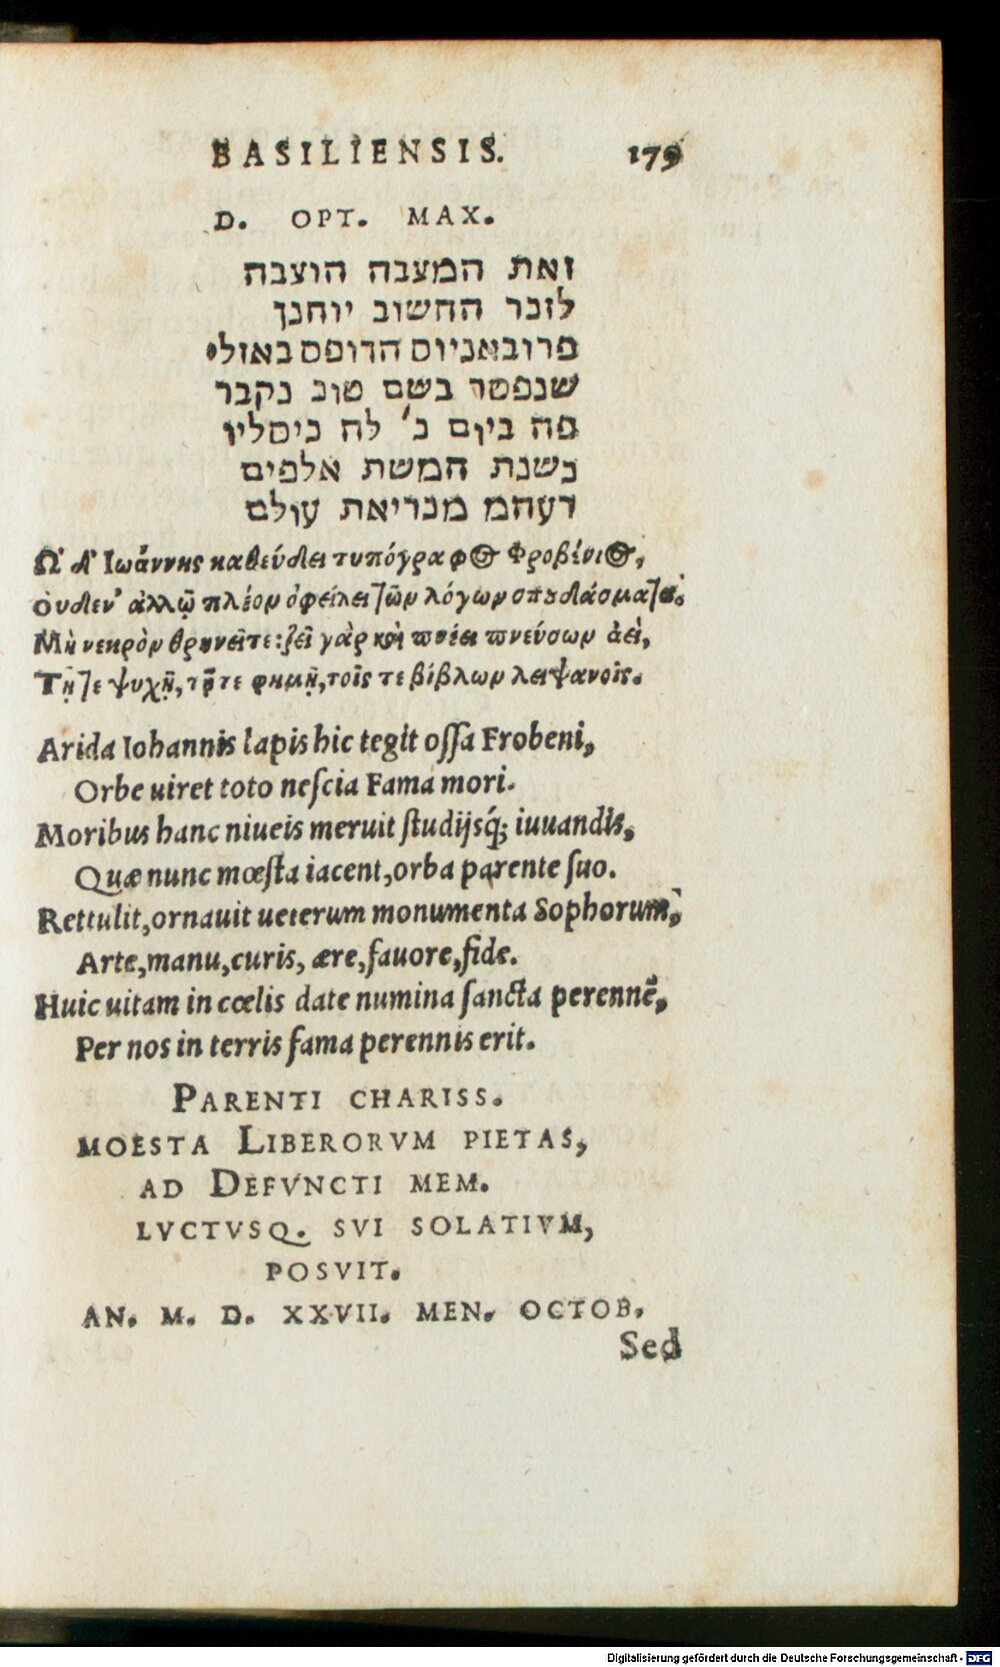 BASILIENSIS. 179
D. OPT. MAX.
זאת המצבה הוצבה
לזכר החשוב יוחנן
פרובאניוס הדופס באזל׳
שנפטר בשם טוב נקבר
פה ביום כ׳ לח כיסליו
בשנת חמשת אלפים
רעחמ מבריאת עולם
Ὧδ᾽ Ἰωάννης καθεύδει τυπόγραφος Φροβένιος,
Οὐδεν᾽ ἀλλῷ πλέον ὀφείλει τῶν λόγων σπουδάσματα.
Μὴ νεκρὸν θρηνεῖτε: ζεῖ γὰρ καὶ πνέει πνεύσων ἀεὶ,
Τῇ τε ψυχῇ, τῇ τε φημῇ, τοῖς τε βίβλων λειψανοῖς.
Arida Iohannis lapis hic tegit ossa Frobeni,
Orbe uiret toto nescia Fama mori.
Moribus hanc niueis meruit studijsq́; iuuandis,
Quæ nunc mœsta iacent, orba parente suo.
Rettulit, ornauit ueterum monumenta Sophorum,
Arte, manu, curis, ære, fauore, fide.
Huic uitam in cœlis date numina sancta perennẽ,
Per nos in terris fama perennis erit.
PARENTI CHARISS.
MOESTA LIBERORVM PIETAS,
AD DEFVNCTI MEM.
LVCTVSQ. SVI SOLATIVM,
POSVIT.
AN. M. D. XXVII. MEN. OCTOB.
Sed
Digitalisierung gefördert durch die Deutsche Forschungsgemeinschaft - DFG